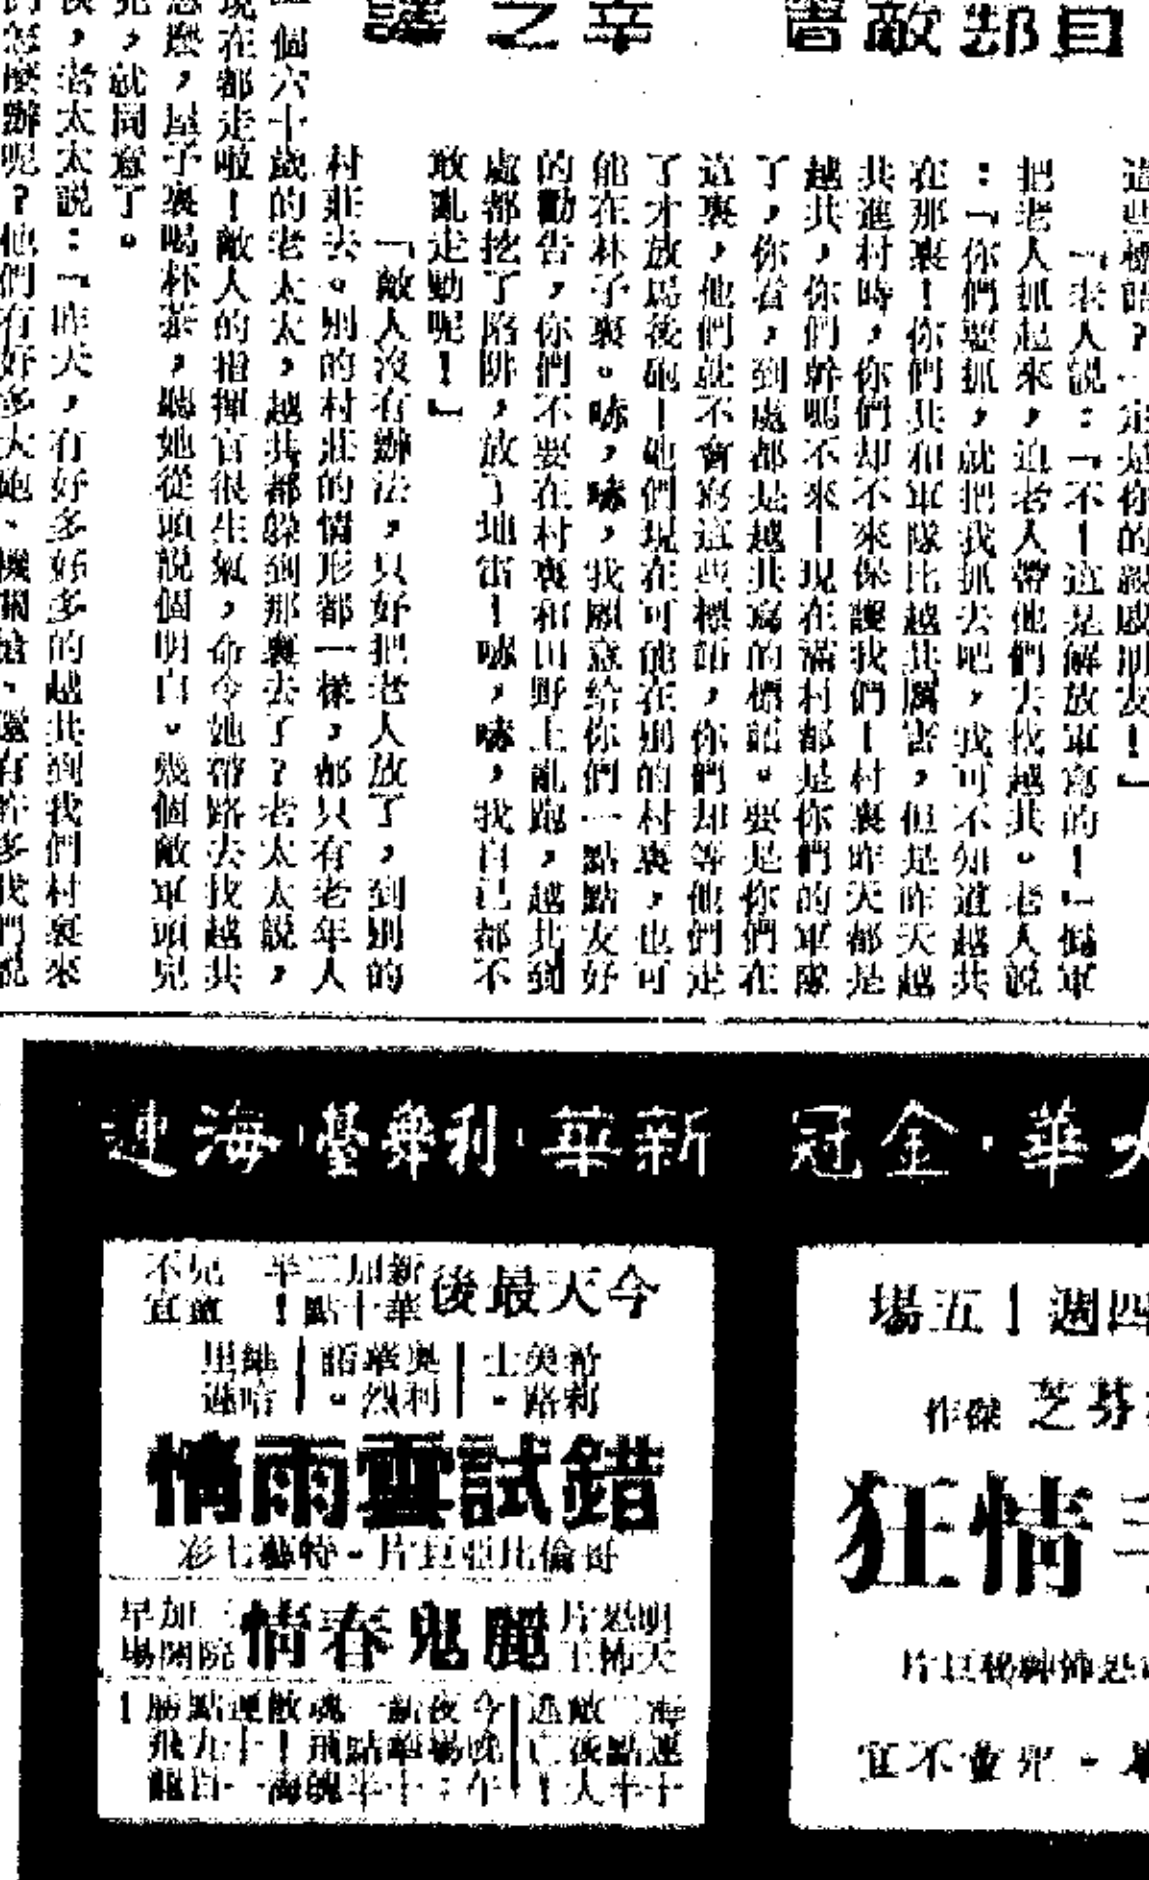 自部敵書 辛之譯
這些標語?一定是你的親戚朋友!」
「來人說:「不!這是解放軍寫的!」僞軍
把老人抓起來,迫老人帶他們去找越共。老人說
:「你們要抓,就把我抓去吧,我可不知道越共
在那裏!你們共和軍隊比越共厲害,但是昨天越
共進村時,你們却不來保護我們!村裏昨天都是
越共,你們幹嗎不來!現在滿村都是你們的軍隊
了,你看,到處都是越共寫的標語。要是你們在
這裏,他們就不會寫這些標語,你們却等他們走
了才放馬後砲!他們現在可能在別的村裏,也可
能在林子裏。咦,咦,我願意給你們一點點友好
的勸告,你們不要在村裏和田野上亂跑,越共到
處都挖了陷阱,放了地雷!咦,咦,我自己都不
敢亂走動呢!」
「敵人沒有辦法,只好把老人放了,到別的
村莊去。別的村莊的情形都一樣,都只有老年人
一個六十歲的老太太,越共都躲到那裏去了?老太太說,
現在都走啦!敵人的指揮官很生氣,命令她帶路去找越共
,屋子裏喝杯茶,聽她從頭說個明白。幾個敵軍頭兒
,就同意了。
,老太太說:「昨天,有好多好多的越共到我們村裏來
的怎麼辦呢?他們有好多大砲、機關槍、還有許多我們說
大華·金冠
新華·利舞臺·海運
四週!五場
芬芝 傑作
情狂
恐怖神秘巨片
兒童不宜
今天最後
新華加十二點半!
兒童不宜
希利路·美士
奧利烈·華諾
維哈里連
錯試雲雨情
哥倫比亞巨片·特藝七彩
明天恐怖片王
麗鬼春情
三院加開早場
海運二點半
敵後十人逃亡
今晚午夜場
新華一點半
魂飛魄散!
海運十一點九
飛龍